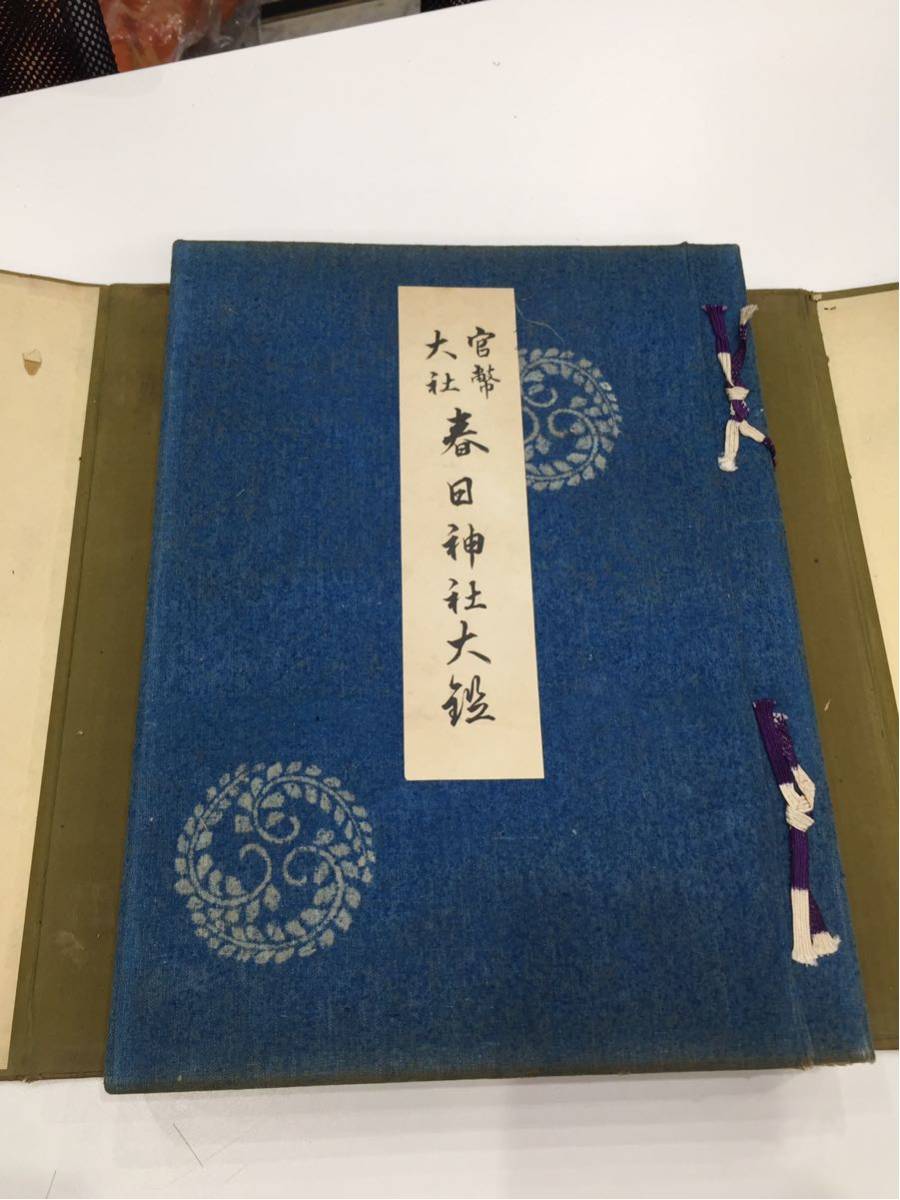 官幣
大社
春日神社大鑑